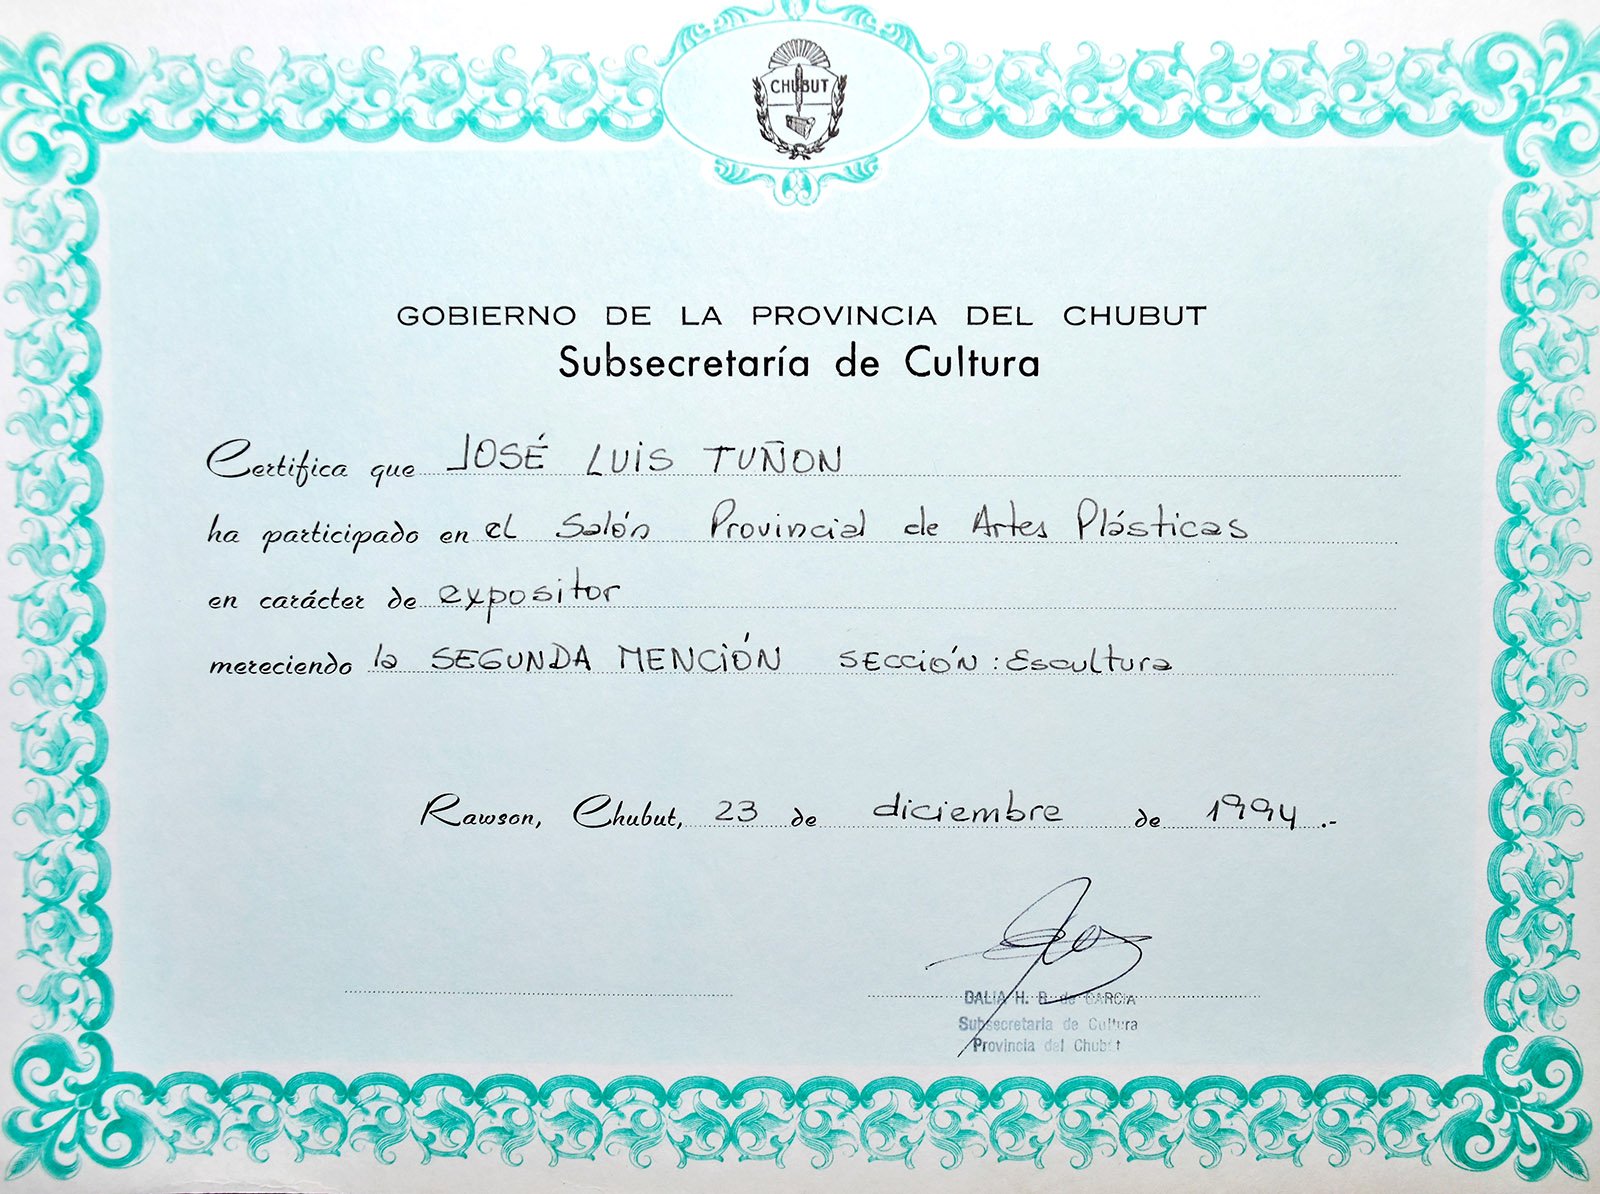 CHUBUT
GOBIERNO DE LA PROVINCIA DEL CHUBUT
Subsecretaría de Cultura
Certifica que JOSÉ LUIS TUÑON
ha participado en el Salón Provincial de Artes Plásticas
en carácter de expositor
mereciendo la SEGUNDA MENCIÓN SECCIÓN: Escultura
Rawson, Chubut, 23 de diciembre de 1994.-
DALIA H. B. de GARCIA
Subsecretaria de Cultura
Provincia del Chubut